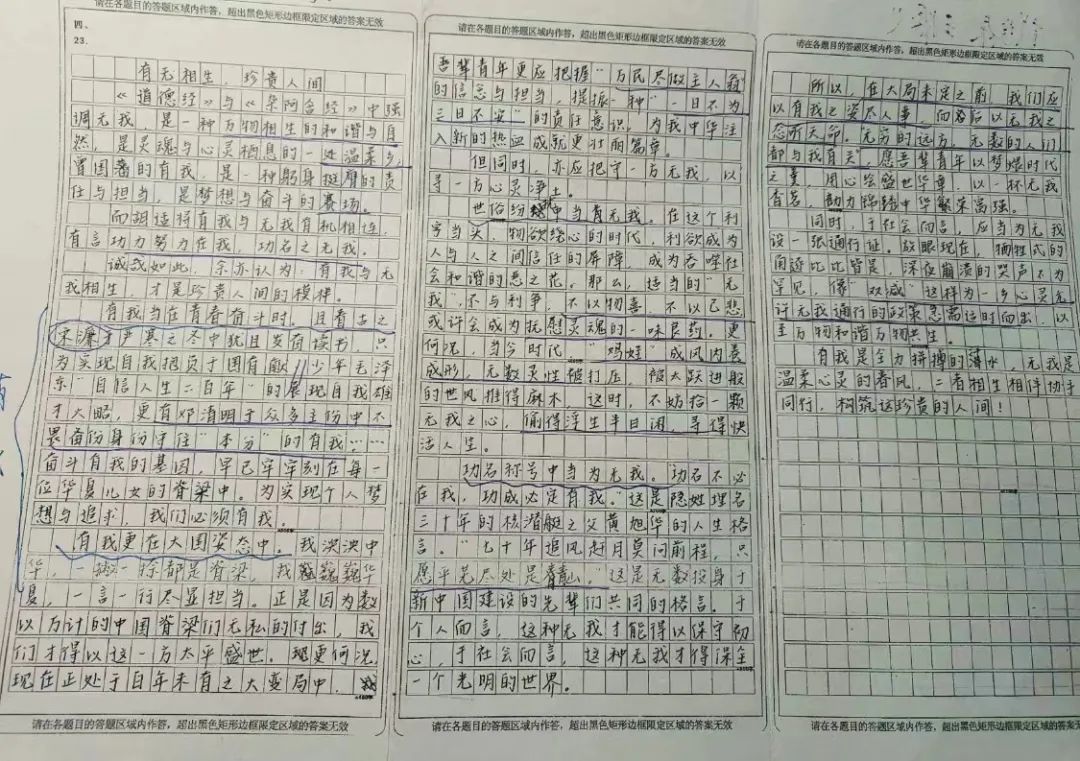 请在各题目的答题区域内作答，超出黑色矩形边框限定区域的答案无效
四、
23.
有无相生，珍贵人间
《道德经》与《杂阿含经》中强
调无我，是一种万物相生的和谐与自
然，是灵魂与心灵栖息的一处温柔乡，
曾国藩的有我，是一种躬身挺膺的责
任与担当，是梦想与奋斗的赛场。
而胡适将有我与无我有机相连，
有言功力努力在我，功名之无我。
诚哉如此，余亦认为：有我与无
我相生，才是珍贵人间的模样。
有我当在青春奋斗时，且看古之
宋濂于严寒之冬中犹且奚宿读书，只
为实现自我把负于国有献，少年毛泽
东“自信人生二百年”的展现自我雄
才大略，更有邓清明于众多主份中不
畏备份身份守住“本分”的有我……
奋斗有我的基因，早已牢牢刻在每一
位华夏儿女的脊梁中。为实现个人梦
想与追求，我们必须有我。
有我更在大国姿态中。我泱泱中
华，一撇一捺都是脊梁，我巍巍华
夏，一言一行尽显担当。正是因为数
以万计的中国脊梁们无私的付出，我
们才得以这一方太平盛世。现更何况
现在正处于百年未有之大变局中，我
请在各题目的答题区域内作答，超出黑色矩形边框限定区域的答案无效
请在各题目的答题区域内作答，超出黑色矩形边框限定区域的答案无效
吾辈青年更应把握“万民尽做主人翁”
的信念与担当，提振一种“一日不为
三日不安”的责任意识，为我中华注
入新的热血成就更壮丽篇章。
但同时，亦应把守一方无我，以
寻一方心灵净土。
世俗纷中当有无我。在这个利
字当头，物欲绕心的时代，利欲成为
人与人之间信任的屏障，成为吞噬社
会和谐的恶之花。那么，适当的“无
我”，不与利争，不以物喜，不以己悲
或许会成为抚慰灵魂的一味良药。更
何况，当今时代，“鸡娃”成风内卷
成形，无数灵性被打压，被大跃进般
的世风推得麻木，这时，不妨拾一颗
无我之心，偷得浮生半日闲，寻得快
活人生。
功名称号中当为无我。功名不必
在我，功成必定有我。“这是隐姓埋名
三十年的核潜艇之父黄旭华的人生格
言。“七十年追风赶月莫问前程，只
愿平芜尽处是青山。”这是无数投身于
新中国建设的先辈们共同的格言。于
个人而言，这种无我才能得以保守初
心，于社会而言，这种无我才得保全
一个光明的世界。
请在各题目的答题区域内作答，超出黑色矩形边框限定区域的答案无效
请在各题目的答题区域内作答，超出黑色矩形边框限定区域的答案无效
所以，在大局未定之前，我们应
以有我之姿尽人事，向答后以无我之
念听天命。无穷的远方，无数的人们
都与我有关，愿吾辈青年以梦煨时代
之羹，用心绘盛世华章，以一杯无我
香茗，助力锦绣中华繁荣富强。
同时，于社会而言，应当为无我
设一张通行证。放眼现在，牺牲式的
角逐比比皆是，深夜崩溃的哭声不为
罕见，像“双减”这样为一乡心灵允
许无我通行的政策急需适时而出，以
至万物和谐万物共生。
有我是全力拼搏的薄冰，无我是
温柔心灵的春风，二者相生相伴协手
同行，构筑这珍贵的人间！
请在各题目的答题区域内作答，超出黑色矩形边框限定区域的答案无效